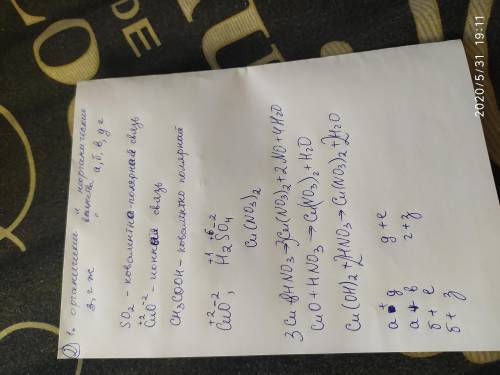 ② 1. органический и неорганический
в, г ж а, б, в, д г
SO2 - ковалентна-полярная связь
+2 -2
CuO - ионная связь
CH3COOH - ковалентно полярный
+2 -2 +1 +6 -2
CuO, H2SO4
Cu(NO3)2
3Cu 8HNO3 → 3Cu(NO3)2 + 2NO + 4H2O
CuO + HNO3 → Cu(NO3)2 + H2O
Cu(OH)2 + 2HNO3 → Cu(NO3)2 2H2O
а + д д + е
а + в г + з
б + е
б + з
2020/5/31 19:11